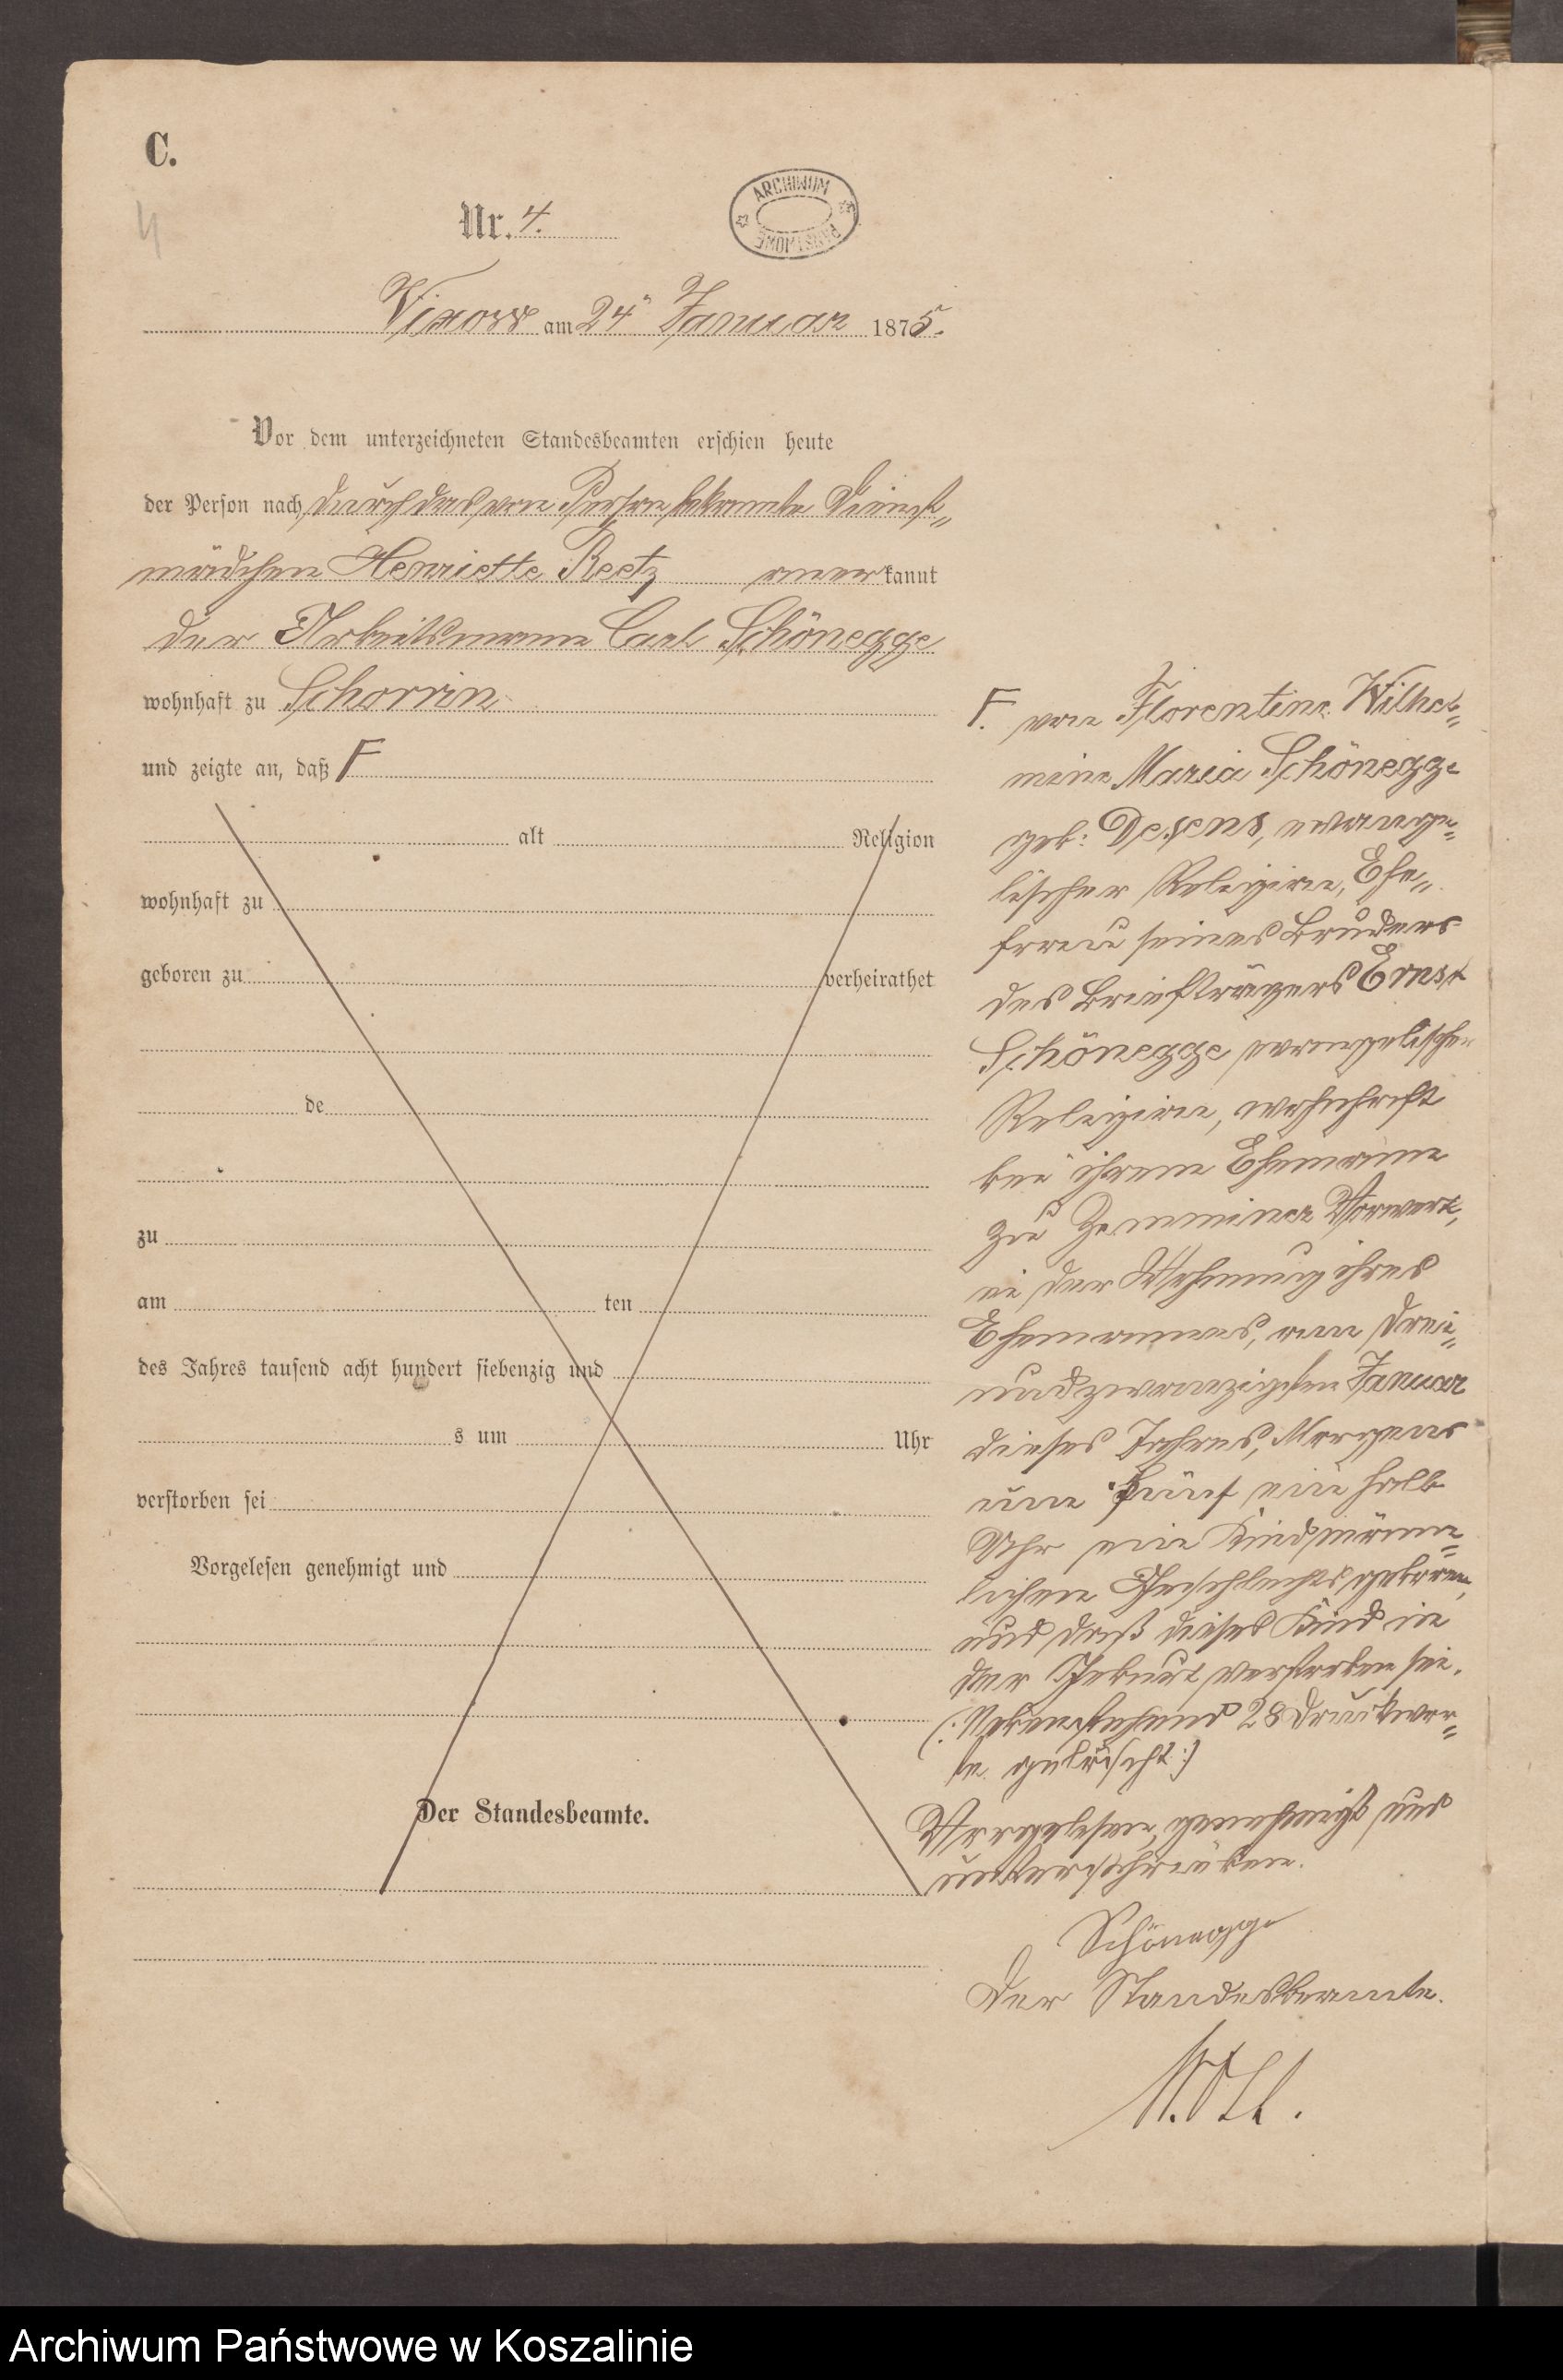 C.
4
Nr. 4.
ARCHIWUM PAŃSTWOWE
Vixow am 24ⁿ Januar 1875.
Vor dem unterzeichneten Standesbeamten erschien heute
der Person nach, durch das von Person bekannte Dienst„
mädchen Henriette Reetz anerkannt
der Arbeitsmann Carl Schönegge
wohnhaft zu Schorrin
und zeigte an, daß F
alt Religion
wohnhaft zu
geboren zu verheirathet
de
zu
am ten
des Jahres tausend acht hundert siebenzig und
s um Uhr
verstorben sei
Vorgelesen genehmigt und
Der Standesbeamte.
F. von Florentine Wilhel„
mine Maria Schönegge
geb: Desens, evange„
lischer Religion, Ehe„
frau seines Bruders
des Briefträgers Ernst
Schönegge evangelischer
Religion, wohnhaft
bei ihrem Ehemann
zu Zemminer Vorwerk,
in der Wohnung ihres
Ehemannes, am drei„
undzwanzigsten Januar
dieses Jahres, Morgens
um fünf ein halb
Uhr ein Kind männ„
lichen Geschlechts geboren,
und daß dieses Kind in
der Geburt verstorben sei.
(: Nebenstehend 28 Druckwor„
te gelöscht :)
Vorgelesen, genehmigt und
unterschrieben.
Schönegge
Der Standesbeamte.
Archiwum Państwowe w Koszalinie